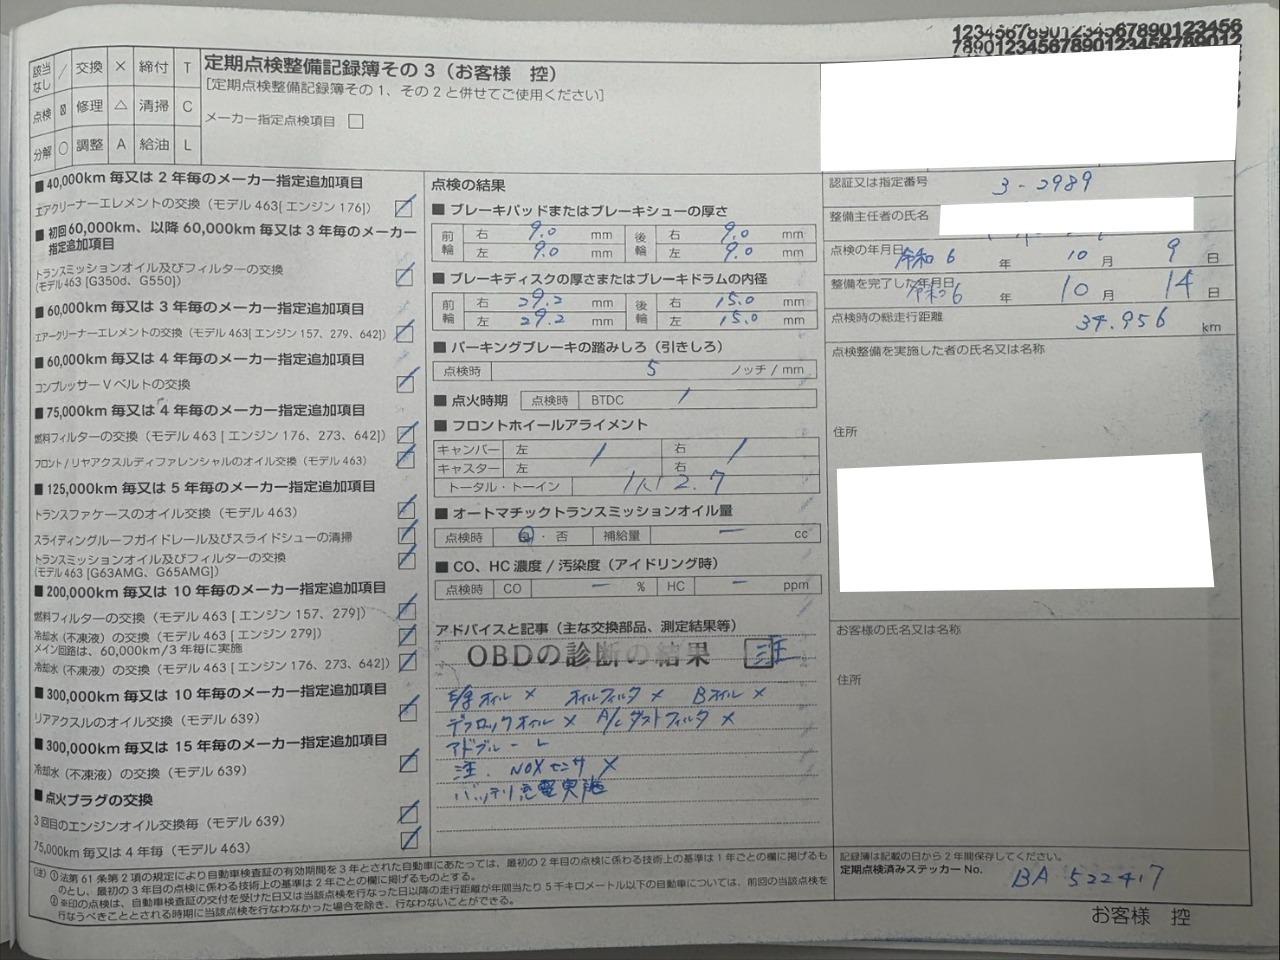 12345678901234567890123456
78901234567890123456789012
該当なし / 交換 × 締付 T
点検 ☒ 修理 △ 清掃 C
分解 ○ 調整 A 給油 L
定期点検整備記録簿その3(お客様 控)
[定期点検整備記録簿その1、その2と併せてご使用ください]
メーカー指定点検項目 □
■40,000km毎又は2年毎のメーカー指定追加項目
エアクリーナーエレメントの交換(モデル463[エンジン176])
■初回60,000km、以降60,000km毎又は3年毎のメーカー
指定追加項目
トランスミッションオイル及びフィルターの交換
(モデル463 [G350d、G550])
■60,000km毎又は3年毎のメーカー指定追加項目
エアークリーナーエレメントの交換(モデル463[エンジン157、279、642])
■60,000km毎又は4年毎のメーカー指定追加項目
コンプレッサーVベルトの交換
■75,000km毎又は4年毎のメーカー指定追加項目
燃料フィルターの交換(モデル463 [エンジン176、273、642])
フロント/リヤアクスルディファレンシャルのオイル交換(モデル463)
■125,000km毎又は5年毎のメーカー指定追加項目
トランスファケースのオイル交換(モデル463)
スライディングルーフガイドレール及びスライドシューの清掃
トランスミッションオイル及びフィルターの交換
(モデル463 [G63AMG、G65AMG])
■200,000km毎又は10年毎のメーカー指定追加項目
燃料フィルターの交換(モデル463 [エンジン157、279])
冷却水(不凍液)の交換(モデル463 [エンジン279])
メイン回路は、60,000km/3年毎に実施
冷却水(不凍液)の交換(モデル463 [エンジン176、273、642])
■300,000km毎又は10年毎のメーカー指定追加項目
リアアクスルのオイル交換(モデル639)
■300,000km毎又は15年毎のメーカー指定追加項目
冷却水(不凍液)の交換(モデル639)
■点火プラグの交換
3回目のエンジンオイル交換毎(モデル639)
75,000km毎又は4年毎(モデル463)
点検の結果
■ブレーキパッドまたはブレーキシューの厚さ
前輪 右 9.0 mm 後輪 右 9.0 mm
左 9.0 mm 左 9.0 mm
■ブレーキディスクの厚さまたはブレーキドラムの内径
前輪 右 29.2 mm 後輪 右 15.0 mm
左 29.2 mm 左 15.0 mm
■パーキングブレーキの踏みしろ(引きしろ)
点検時 5 ノッチ/mm
■点火時期 点検時 BTDC /
■フロントホイールアライメント
キャンバー 左 / 右 /
キャスター 左 右
トータル・トーイン イン 2.7
■オートマチックトランスミッションオイル量
点検時 良・否 補給量 ー cc
■CO、HC濃度/汚染度(アイドリング時)
点検時 CO ー % HC ー ppm
アドバイスと記事(主な交換部品、測定結果等)
OBDの診断の結果 注
オイル × オイルフィルタ × Bオイル ×
デフロックオイル × A/Cダストフィルタ ×
アドブルー L
注. NOXセンサ ×
バッテリ充電実施
認証又は指定番号 3-2989
整備主任者の氏名
点検の年月日 令和6年 10月 9日
整備を完了した年月日 令和6年 10月 14日
点検時の総走行距離 34.956 km
点検整備を実施した者の氏名又は名称
住所
お客様の氏名又は名称
住所
記録簿は記載の日から2年間保存してください。
定期点検済みステッカーNo. BA 522417
(注)①法第61条第2項の規定により自動車検査証の有効期間を3年とされた自動車にあたっては、最初の2年目の点検に係わる技術上の基準は1年ごとの欄に掲げるも
のとし、最初の3年目の点検に係わる技術上の基準は2年ごとの欄に掲げるものとする。
②※印の点検は、自動車検査証の交付を受けた日又は当該点検を行なった日以降の走行距離が年間当たり5千キロメートル以下の自動車については、前回の当該点検を
行なうべきこととされる時期に当該点検を行なわなかった場合を除き、行なわないことができる。
お客様 控